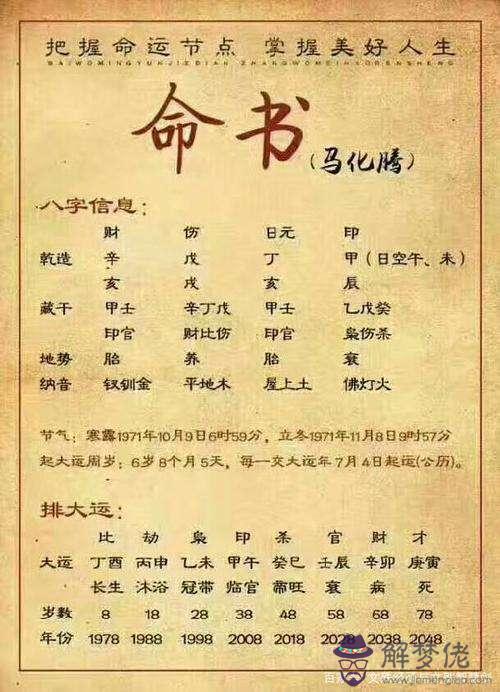 把握命运节点 掌握美好人生
BAIWOMINGYUNJIEDIAN ZHANGWOMEIHAORENSHENG
命书
(马化腾)
八字信息:
财 伤 日元 印
乾造 辛 戊 丁 甲 (日空午、未)
亥 戌 亥 辰
藏干 甲壬 辛丁戊 甲壬 乙戊癸
印官 财比伤 印官 枭伤杀
地势 胎 养 胎 衰
纳音 钗钏金 平地木 屋上土 佛灯火
节气: 寒露1971年10月9日6时59分, 立冬1971年11月8日9时57分
起大运周岁: 6岁8个月5天, 每一交大运年7月4日起运(公历)。
排大运:
比 劫 枭 印 杀 官 财 才
大运 丁酉 丙申 乙未 甲午 癸巳 壬辰 辛卯 庚寅
长生 沐浴 冠带 临官 帝旺 衰 病 死
岁数 8 18 28 38 48 58 68 78
年份 1978 1988 1998 2008 2018 2028 2038 2048
解梦佬
www.jiemenglao.com